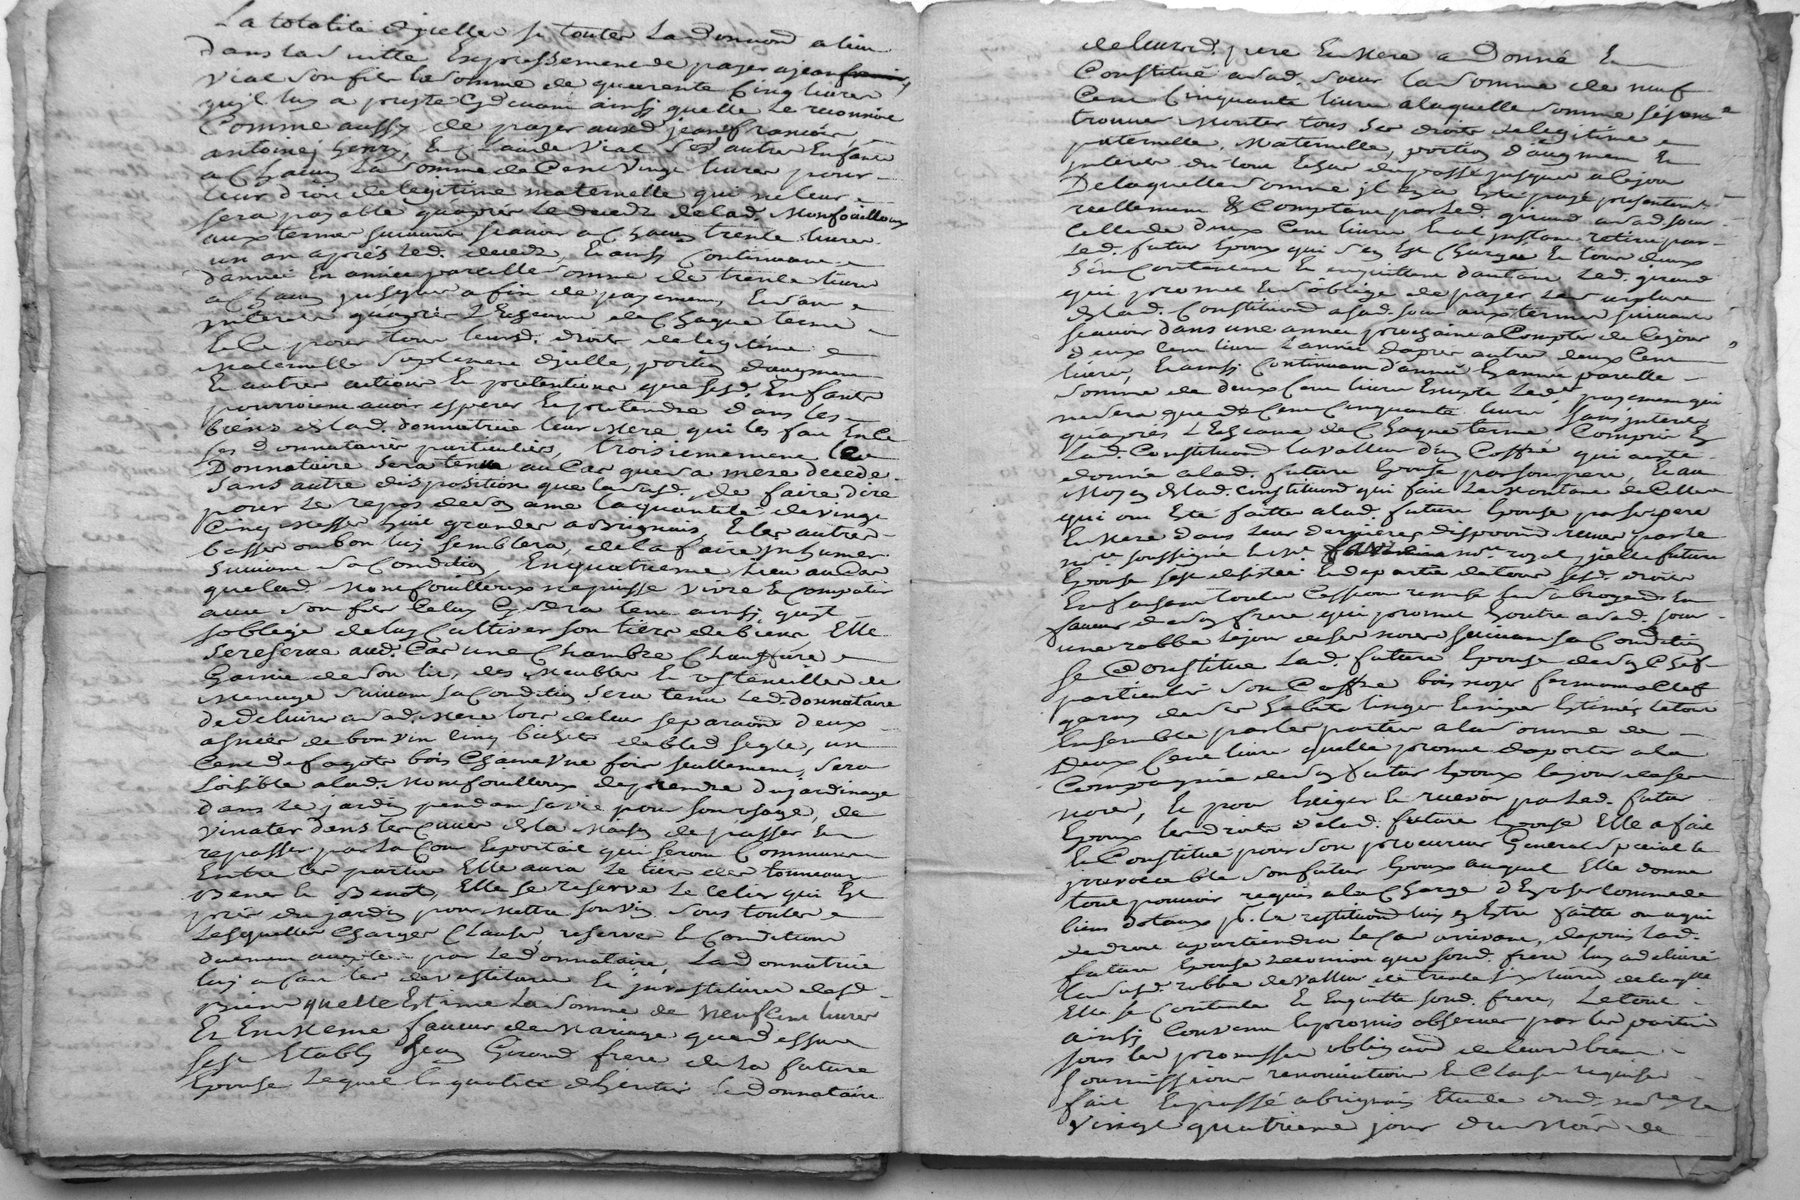 La totalité d'jcelles se toutes La donnaõn a lieu
dans la d. suitte Expressement de payer a jean
Vial Son fils la Somme de quarente Cinq livres
qu'jl luy a preste Cy devant ainsi quelle le reconnoit
Comme aussy de payer aused. jean francois,
antoine, henry, Et Claude Vial ses autres Enfants
a Chacun La Somme de Cent Vingt livres pour
leur droit de legitime maternelle qui ne leur
sera payable qu'aprés le deceds de lad. Monfouilloux
aux termes suivants scavoir a Chacun trente livres
un an aprés led. deceds, Et ainsi Continuant
d'année En année pareille Somme de trente livres
a Chacun jusques a fin de payement Et sans
jnterets qu'aprés L'Echeance de Chaque terme
Et Ce pour tous leursd. droits de legitime
Maternelle Suplement d'jcelle, portion d'augment
Et autres actions Et pretentions que sesd. Enfants
pourroient avoir esperer Et pretendre dans les
biens de lad. donnatrice leur Mere qui les fait En Ce
ses donnataires particuliers, troisiemement le
Donnataire Sera tenu au Cas que sa mere decede
Sans autre disposition que la susd. de faire dire
pour Le repos de son ame la quantité de vingt
Cinq Messes huit grandes a brignais, Et les autres
basses ou bon luy Semblera, de la faire jnhumer
Suivant Sa Condition, En quatrieme Lieu au Cas
que lad. Monfouilloux ne puisse Vivre Et Compatir
avec Son fils Celuy Cy Sera tenu ainsi qu'jl
s'oblige de luy Cultiver Son tiers de biens Elle
se reserve aud. Cas une Chambre Chauffure
Garnie de Son lit, des Meubles Et Usteinsilles de
Menage Suivant sa Condition Sera tenu Led. donnataire
de delivrer a sad. Mere lors de leur separaõn deux
asnées de bon vin Cinq bichets de bled seigle, un
Cent de fagots bois Chaine Une fois seullement, Sera
Loisible a lad. Monfouilloux de prendre du jardinage
dans Le jardin pendant sa vie pour Son usage, de
Vinater dans les Cuves de la Maison de passer Et
repasser par la Cour Et portail qui seront Communs
Entre les parties Elle aura Le tiers des tonneaux
Elle se reserve Le Celier qui Est
près du jardin pour Mettre son Vin sous toutes
Lesquelles Charges Clauses, reserves Et Conditions
par Le donnataire, La donnatrice
luy a fait les devestitures Et jnvestitures desd.
Biens quelle Estime La Somme de Neuf Cent livres
Et En Meme faveur de Mariage que dessus
s'est Etably Jean Giraud frere de La future
Epouse Lequel En qualité d'heritier Et donnataire
de leursd. pere Et Mere a Donné Et
Constitué a sad. Soeur la Somme de neuf
Cent Cinquante livres a laquelle Somme
trouver Monter tous Ses droits de legitime
paternelle, Maternelle, portion d'augment Et
jnterets du tout Echus du passé jusques a Cejour
De laquelle Somme jl En a Eté payé presentement
reellement Et Comptant par Led. giraud a sad. Soeur
Celle de deux Cent livres Et a l'jnstant retirée par
Led. futur Epoux qui S'en Est Chargé Et tous deux
S'en Contentent Et en quittent d'autant Led. giraud
qui promet Et s'oblige de payer Le surplus
de lad. Constitution a sad. soeur aux termes suivants
scavoir dans une année prochaine a Compter de Cejour
deux Cent livres L'année d'apres autres deux Cent
livres, Et ainsi Continuant d'année En année pareille
Somme de deux Cent livres Excepté Led. payement qui
ne sera que de Cent Cinquante livres Sans jnterets
qu'aprés L'Echeance de Chaque terme Compris En
Lad. Constitution la valleur d'un Coffre qui a été
donné a lad. future Epouse par son pere, Et au
Moyen de lad. constitution qui fait Le Montant de Celle
qui ont Eté faites a lad. future Epouse par ses pere
Et Mere dans Leur dernieres dispoõns par le
nore. soussigné Et Me. nore. royal, jcelle future
Epouse s'est desistée Et departie de tous sesd. droits
En faisant toutte Cession remise Et Subrogaõn En
faveur de son frere qui promet Et outre a sad. soeur
une robbe le jour de Ses noces suivant sa Condition
Se Constitue Lad. future Epouse de son Chef
particulier Son Coffre bois noyer fermant a Clef
garny de ses habits linges Et estimés Le tout
Ensemble par les parties a la Somme de
Deux Cent livres quelle promet d'aporter a la
Compagnie de son futur Epoux le jour de ses
noces, Et pour Exiger Et recevoir par Led. futur
Epoux les droits de lad. future Epouse Elle a fait
Et Constitué pour Son procureur General Special Et
jrrevocable Son futur Epoux auquel Elle donne
tout pouvoir requis a la Charge d'Exposer Comme de
biens dotaux pr. la restitution luy En Estre faitte ou a qui
de droit apartiendra le Cas arrivant, depuis Lad.
future Epouse reconnoit que sond. frere luy a delivré
La susd. robbe de Valleur de trente six livres de laquelle
Elle se Contente Et En quitte sond. frere, Le tout
ainsi Convenu Et promis observer par les parties
sous les promesses obligaõns de leurs biens
soumissions renonciations Et Clauses requises
fait Et passé a brignais Etude dud. nore. le
Vingt quatrieme jour du Mois de